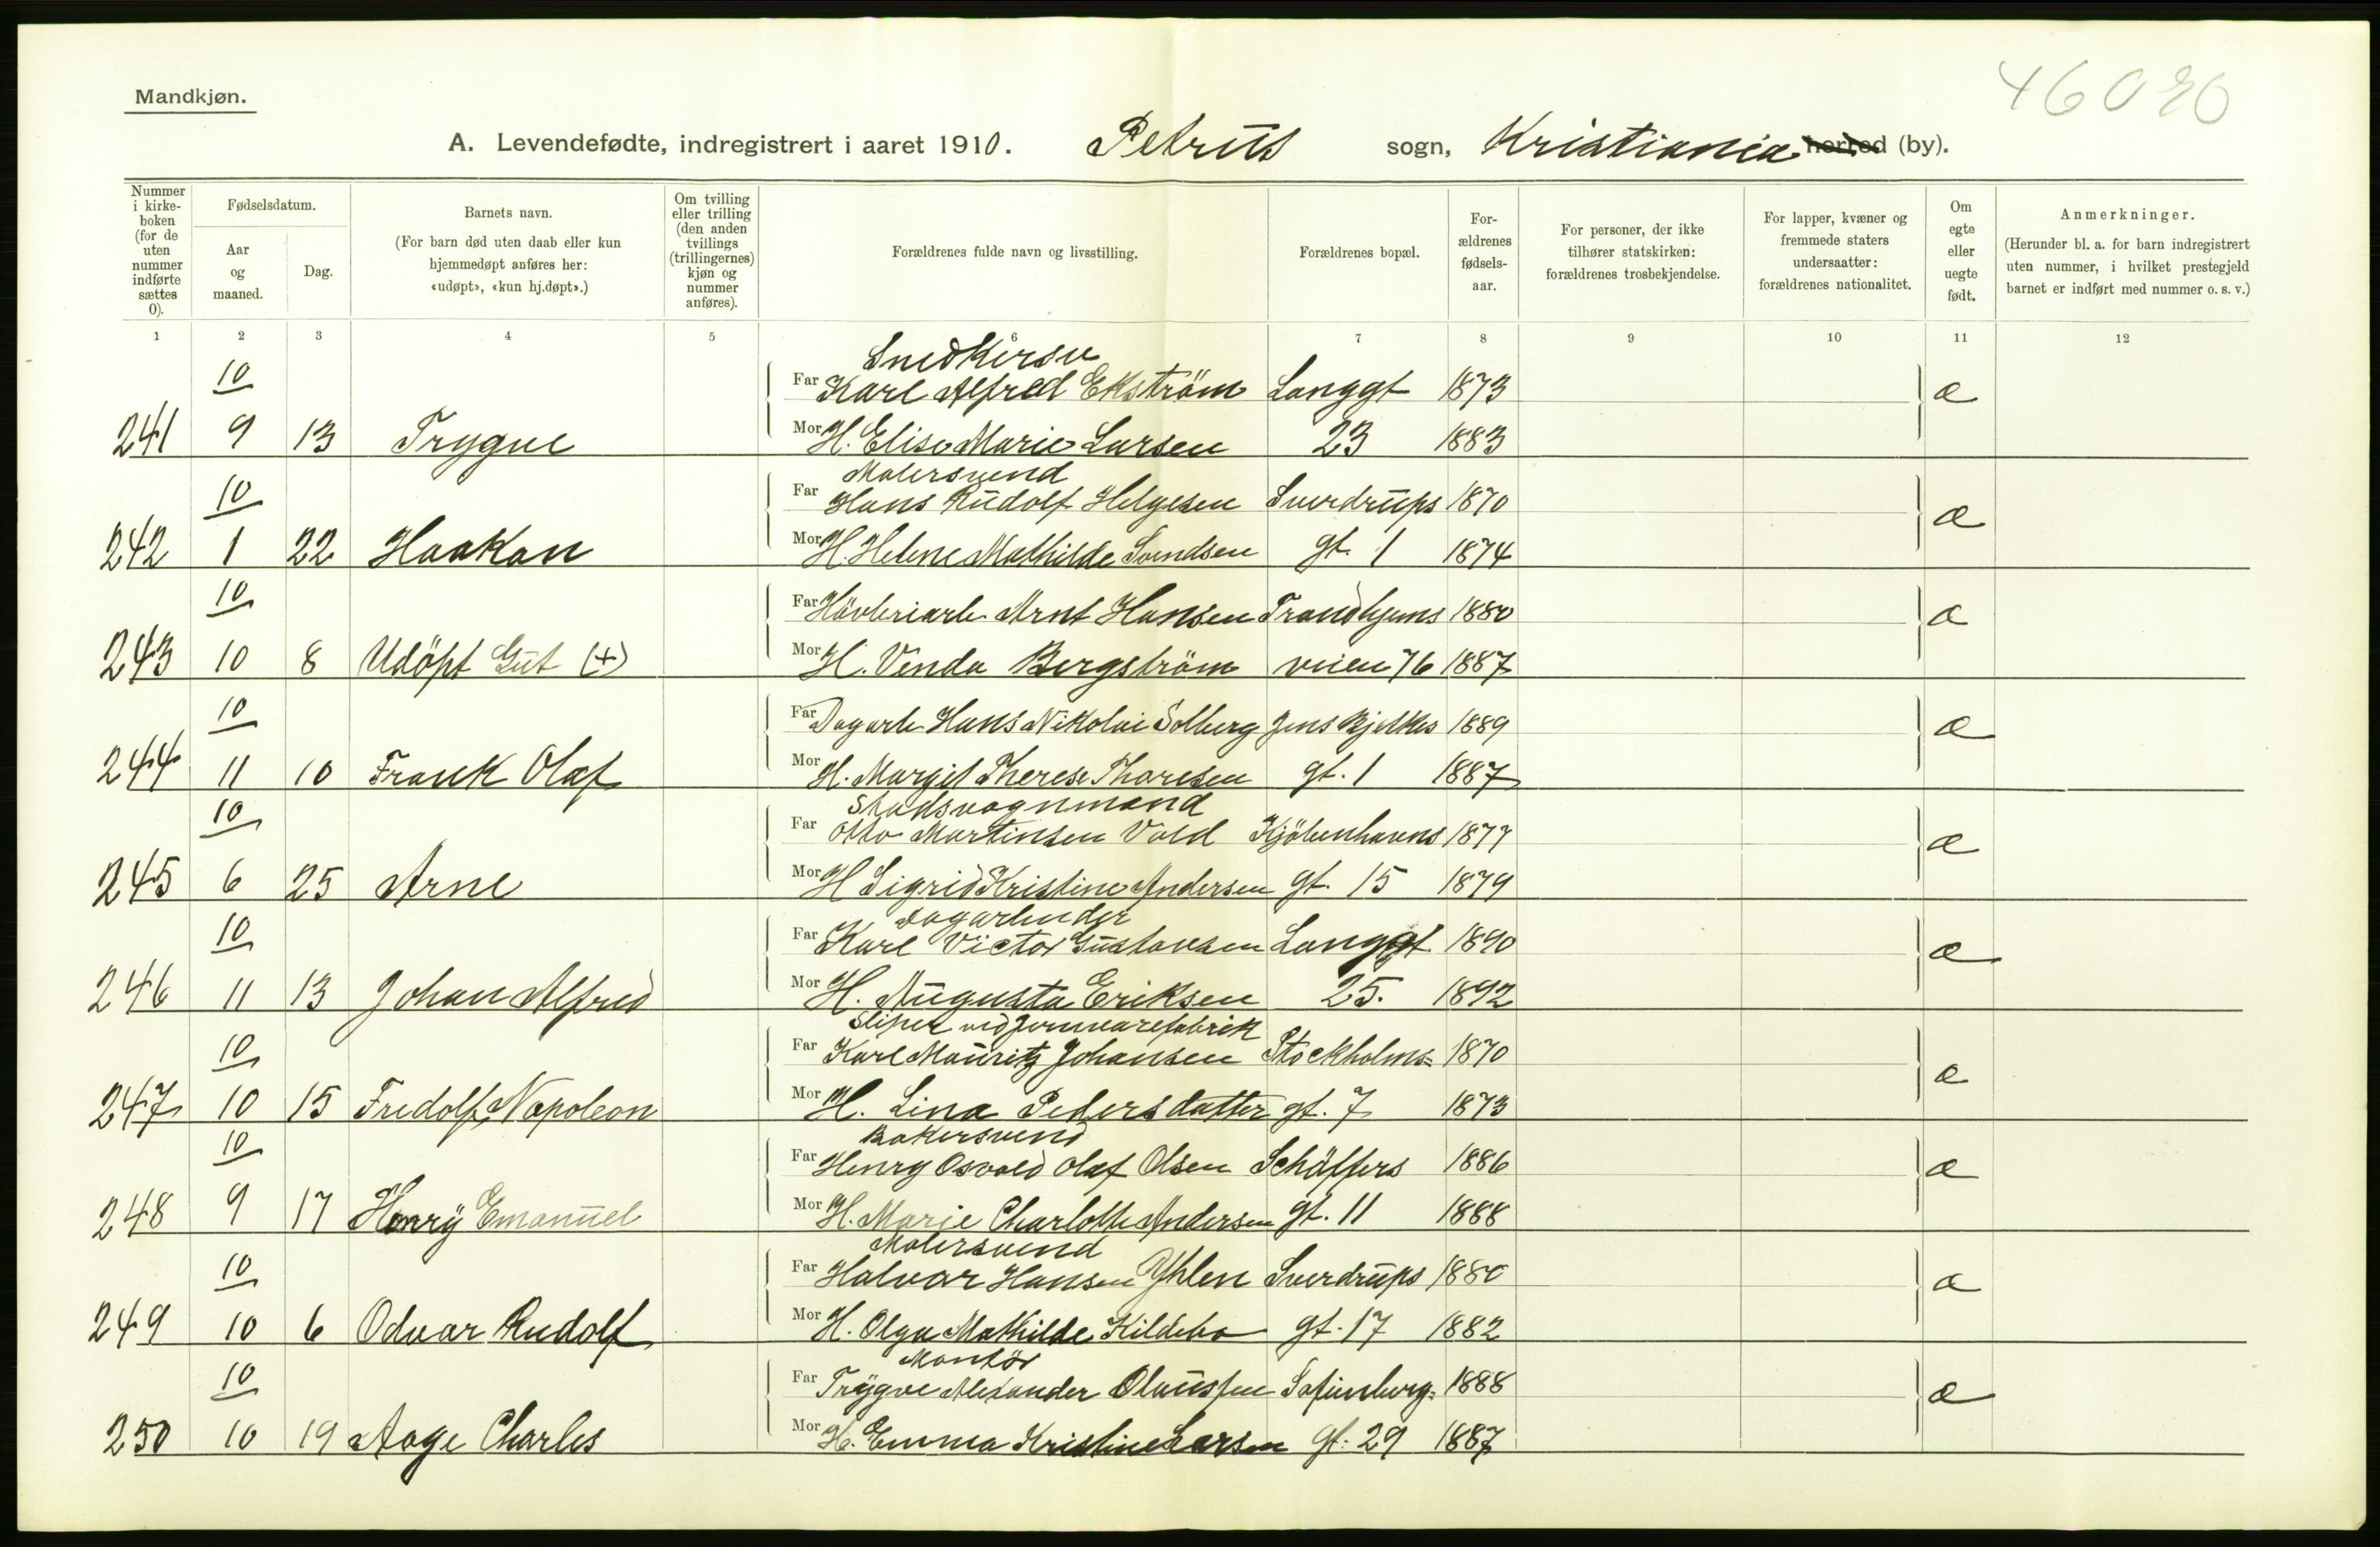 46020
Mandkjøn.
A. Levendefødte, indregistrert i aaret 1910. Petrus sogn, Kristiania herred (by).
Nummer i kirkeboken (for de uten nummer indførte sættes 0).
Fødselsdatum.
Aar og maaned.
Dag.
Barnets navn.
(For barn død uten daab eller kun hjemmedøpt anføres her: «udøpt», «kun hj.døpt».)
Om tvilling eller trilling (den anden tvillings (trillingernes) kjøn og nummer anføres).
Forældrenes fulde navn og livsstilling.
Forældrenes bopæl.
Forældrenes fødselsaar.
For personer, der ikke tilhører statskirken: forældrenes trosbekjendelse.
For lapper, kvæner og fremmede staters undersaatter: forældrenes nationalitet.
Om egte eller uegte født.
Anmerkninger.
(Herunder bl. a. for barn indregistrert uten nummer, i hvilket prestegjeld barnet er indført med nummer o. s. v.)
1 2 3 4 5 6 7 8 9 10 11 12
Snedkersv
10 Far Karl Alfred Ekström Langgt 1873 æ
241 9 13 Trygve Mor H. Elise Marie Larsen 23 1883
Malersvend
10 Far Hans Rudolf Helgesen Sverdrups 1870 æ
242 1 22 Haakon Mor H. Helene Mathilde Svendsen gt. 1 1874
10 Far Hövleriarb. Arnt Hansen Trondhjems 1880 æ
243 10 8 Udöpt Gut (+) Mor H. Venda Bergström veien 76 1887
10 Far Dagarb. Hans Nikolai Solberg Jens Bjelkes 1889 æ
244 11 10 Frank Olaf Mor H. Margit Therese Thoresen gt. 1 1887
Stadsvognmand
10 Far Otto Martinsen Vold Kjöbenhavns 1877 æ
245 6 25 Arne Mor H Sigrid Kristine Andersen gt. 15 1879
Dagarbeider
10 Far Karl Victor Gustavsen Langgt 1890 æ
246 11 13 Johan Alfred Mor H. Augusta Eriksen 25. 1892
Sliper ved Jernvarefabrik
10 Far Karl Mauritz Johansen Stockholms= 1870 æ
247 10 15 Fredolf Napoleon Mor H. Lina Pedersdatter gt. 7 1873
Bakersvend
10 Far Henry Osvald Olaf Olsen Schäffers 1886 æ
248 9 17 Henry Emanuel Mor H. Marie Charlotte Andersen gt. 11 1888
Malersvend
10 Far Halvar Hansen Yhlen Sverdrups 1880 æ
249 10 6 Odvar Rudolf Mor H. Olga Mathilde Kildebo gt. 17 1882
Montör
10 Far Trygve Alexander Olaussen Sofienberg= 1888 æ
250 10 19 Aage Charles Mor H. Emma Kristine Larsen gt. 29 1887